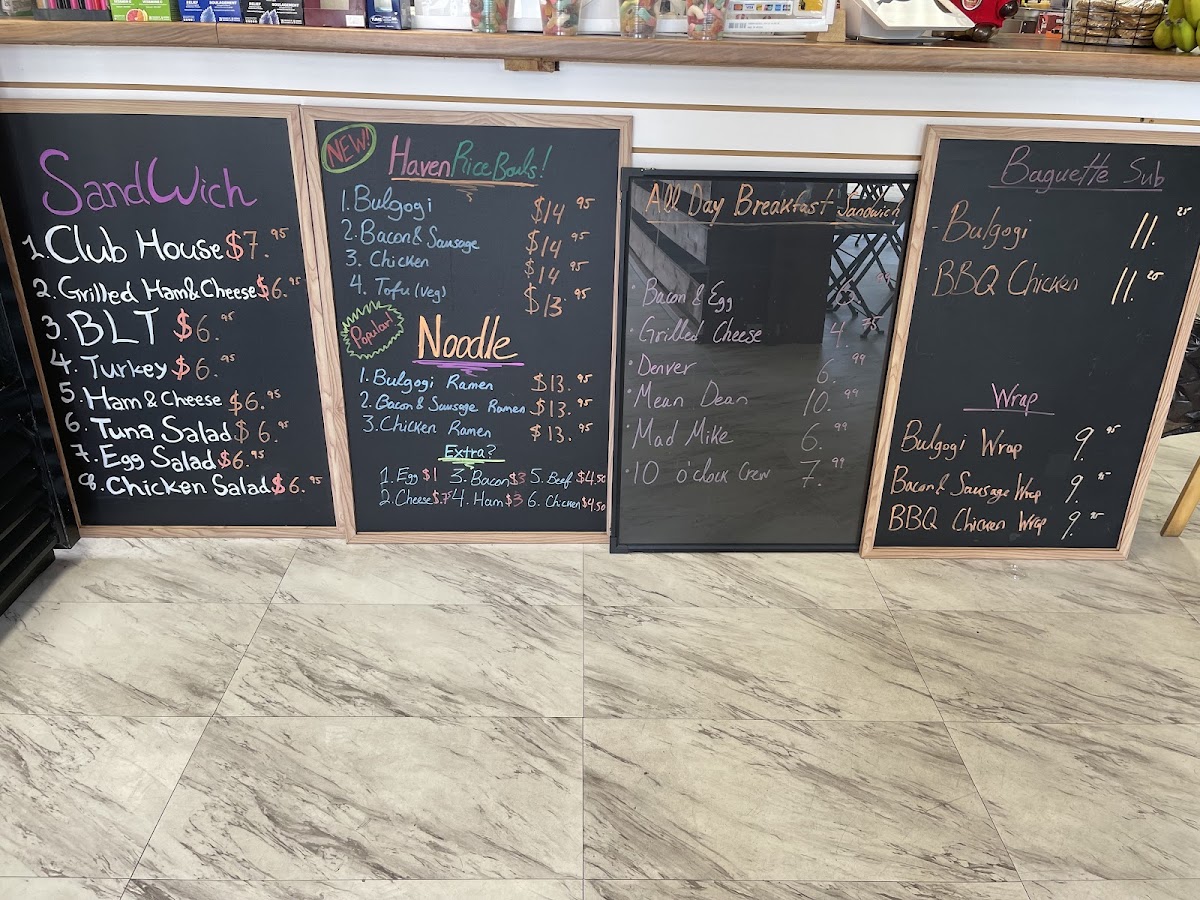 SandWich
1. Club House $7.95
2. Grilled Ham & Cheese $6.95
3. BLT $6.95
4. Turkey $6.95
5. Ham & Cheese $6.95
6. Tuna Salad $6.95
7. Egg Salad $6.95
8. Chicken Salad $6.95
NEW!
Haven Rice Bowls!
1. Bulgogi $14.95
2. Bacon & Sausage $14.95
3. Chicken $14.95
4. Tofu (Veg) $13.95
Popular!
Noodle
1. Bulgogi Ramen $13.95
2. Bacon & Sausage Ramen $13.95
3. Chicken Ramen $13.95
Extra?
1. Egg $1 3. Bacon $3 5. Beef $4.50
2. Cheese $.75 4. Ham $3 6. Chicken $4.50
All Day Breakfast Sandwich
· Bacon & Egg
· Grilled Cheese 4.75
· Denver 6.99
· Mean Dean 10.99
· Mad Mike 6.99
· 10 o'clock Crew 7.99
Baguette Sub
· Bulgogi 11.25
· BBQ Chicken 11.25
Wrap
Bulgogi Wrap 9.95
Bacon & Sausage Wrap 9.95
BBQ Chicken Wrap 9.95